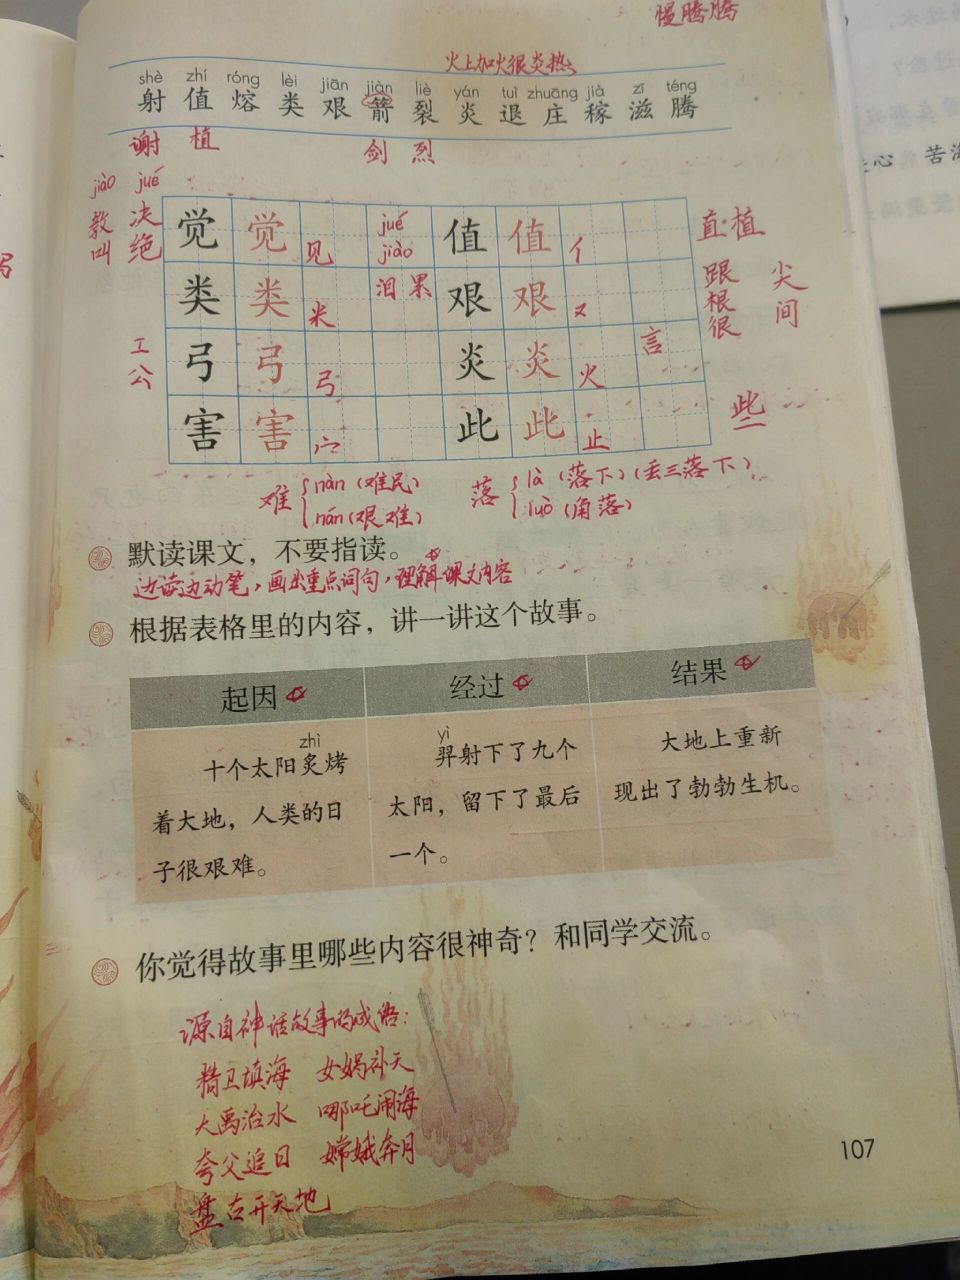 慢腾腾
火上加火很炎热
shè zhí róng lèi jiān jiàn liè yán tuì zhuāng jià zī téng
射 值 熔 类 艰 箭 裂 炎 退 庄 稼 滋 腾
谢 植 剑 烈
jiào jué
教 决 觉 觉 见 jué 值 值 亻 直 植
叫 绝 jiào
类 类 米 泪 累 艰 艰 又 跟 根 很 尖 间
工 公 弓 弓 弓 炎 炎 火 言
害 害 宀 此 此 止 些
难 nàn（难民） 落 là（落下）（丢三落下）
nán（艰难） luò（角落）
默读课文，不要指读。
边读边动笔，画出重点词句，理解课文内容
根据表格里的内容，讲一讲这个故事。
起因 经过 结果
zhì yì
十个太阳炙烤 羿射下了九个 大地上重新
着大地，人类的日 太阳，留下了最后 现出了勃勃生机。
子很艰难。 一个。
你觉得故事里哪些内容很神奇？和同学交流。
源自神话故事的成语：
精卫填海 女娲补天
大禹治水 哪吒闹海
夸父追日 嫦娥奔月
盘古开天地
107
心 苦海